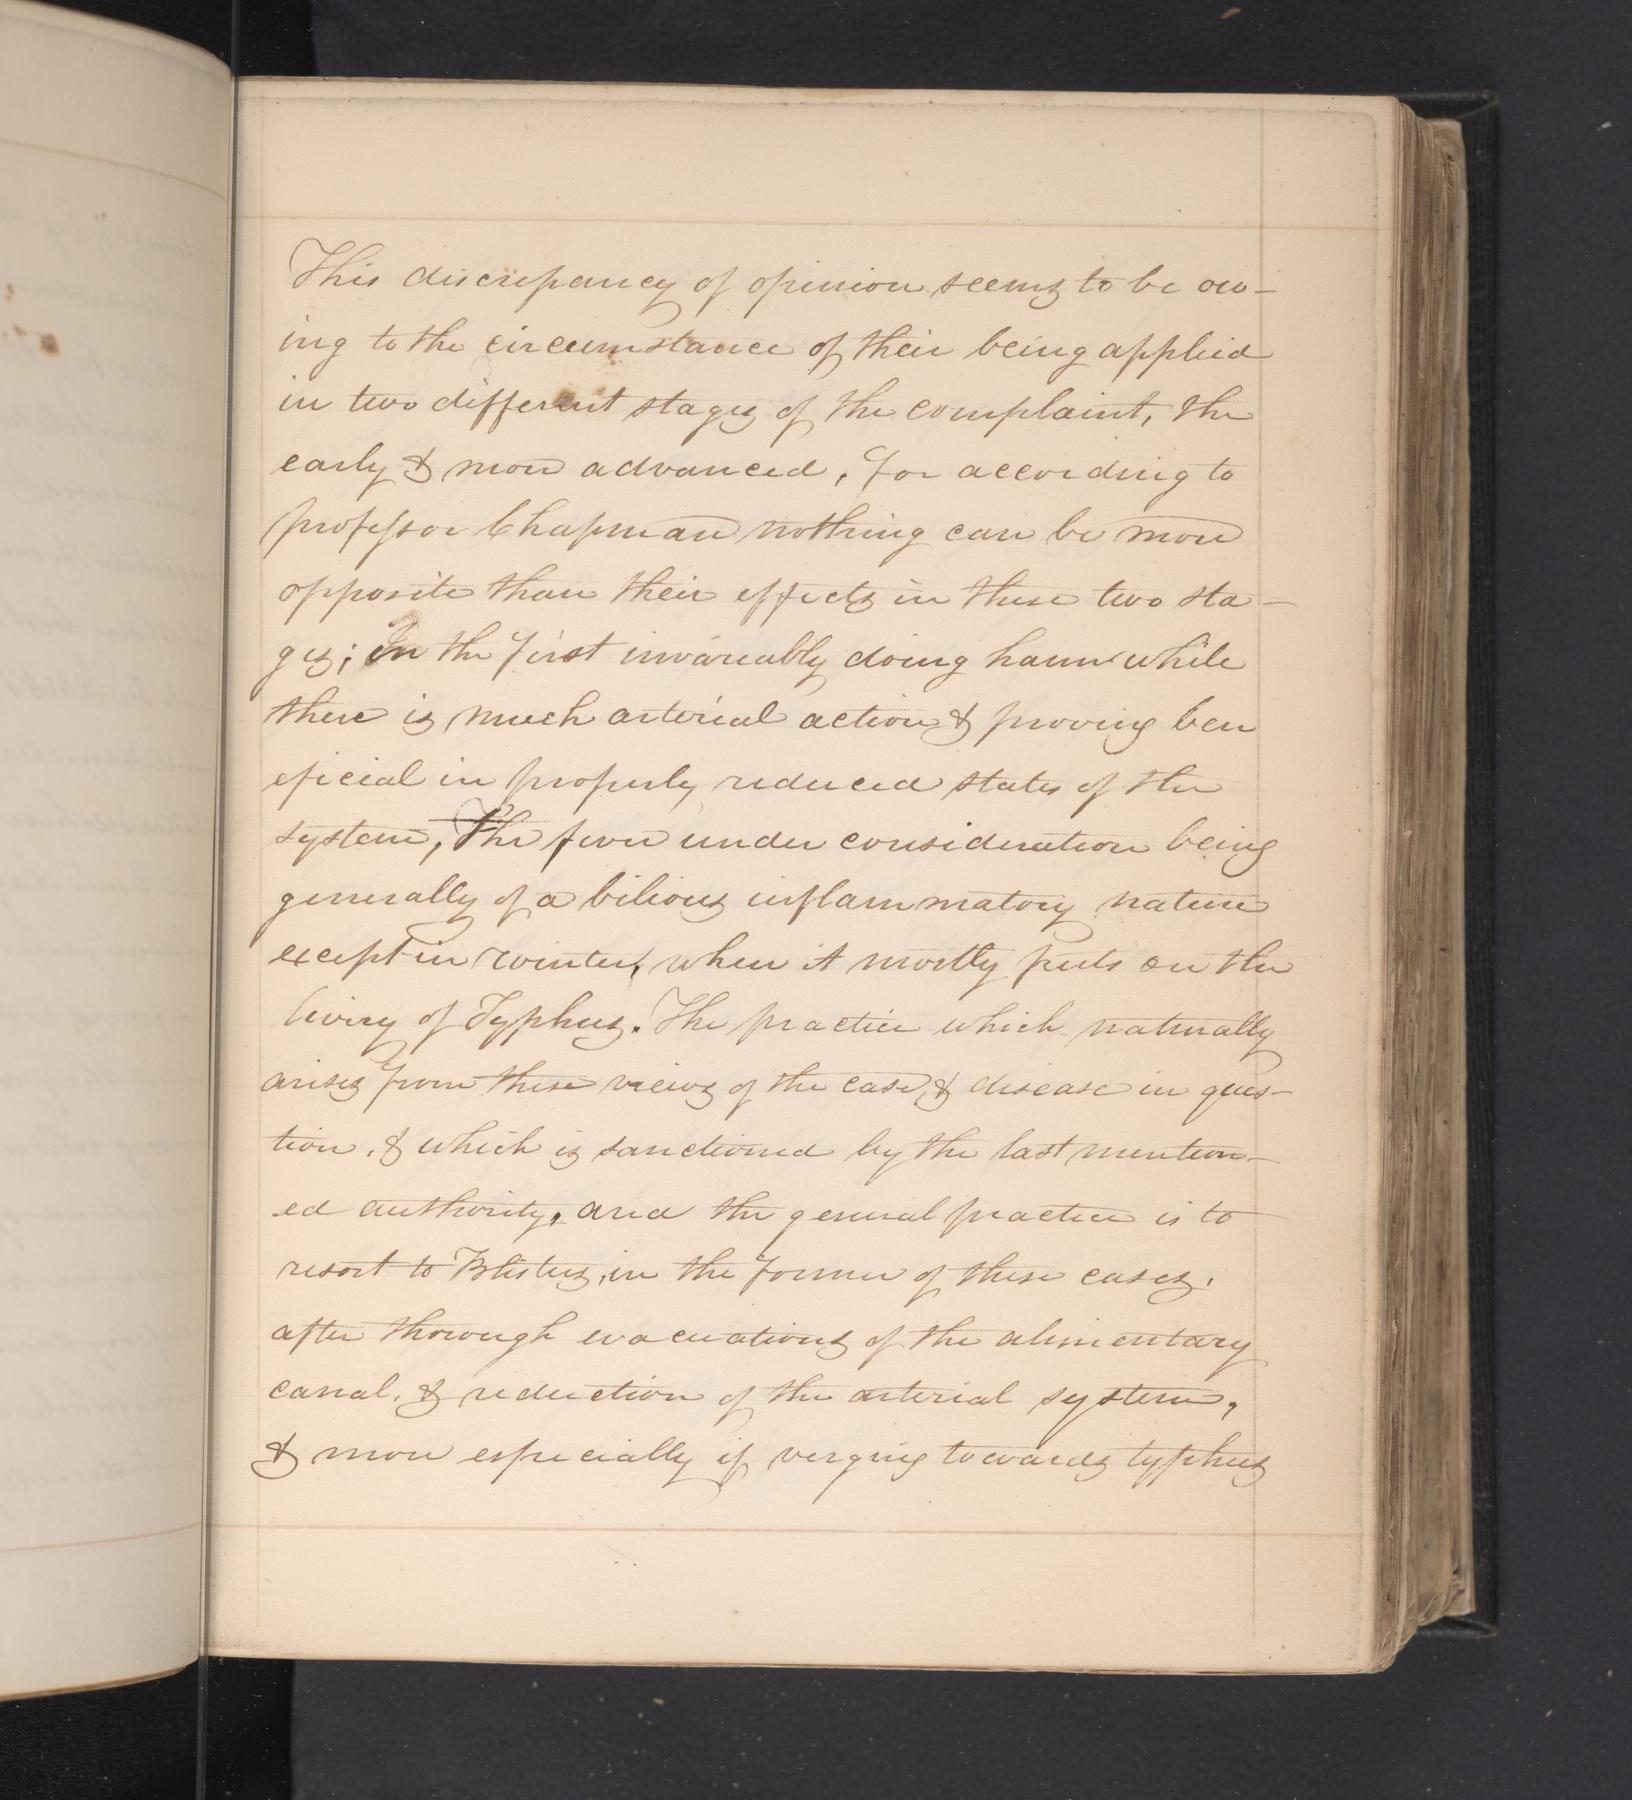 This discrepancy of opinion seems to be ow-
ing to the circumstance of their being applied
in two different stages of the complaint, the
early & more advanced, for according to
professor Chapman nothing can be more
opposite than their effects in these two sta-
ges; In the first invariably doing harm while
there is much arterial action & proving ben
eficial in properly reduced states of the
system, The fever under consideration being
generally of a bilious inflammatory nature
except in winter, when it mostly puts on the
livery of Typhus. The practice which naturally
arises from these views of the case & disease in ques-
tion, & which is sanctioned by the last mention-
ed authority, and the general practice is to
resort to Blisters, in the former of these cases,
after thorough evacuations of the alimentary
canal, & reduction of the arterial system,
& more especially if verging towards typhus